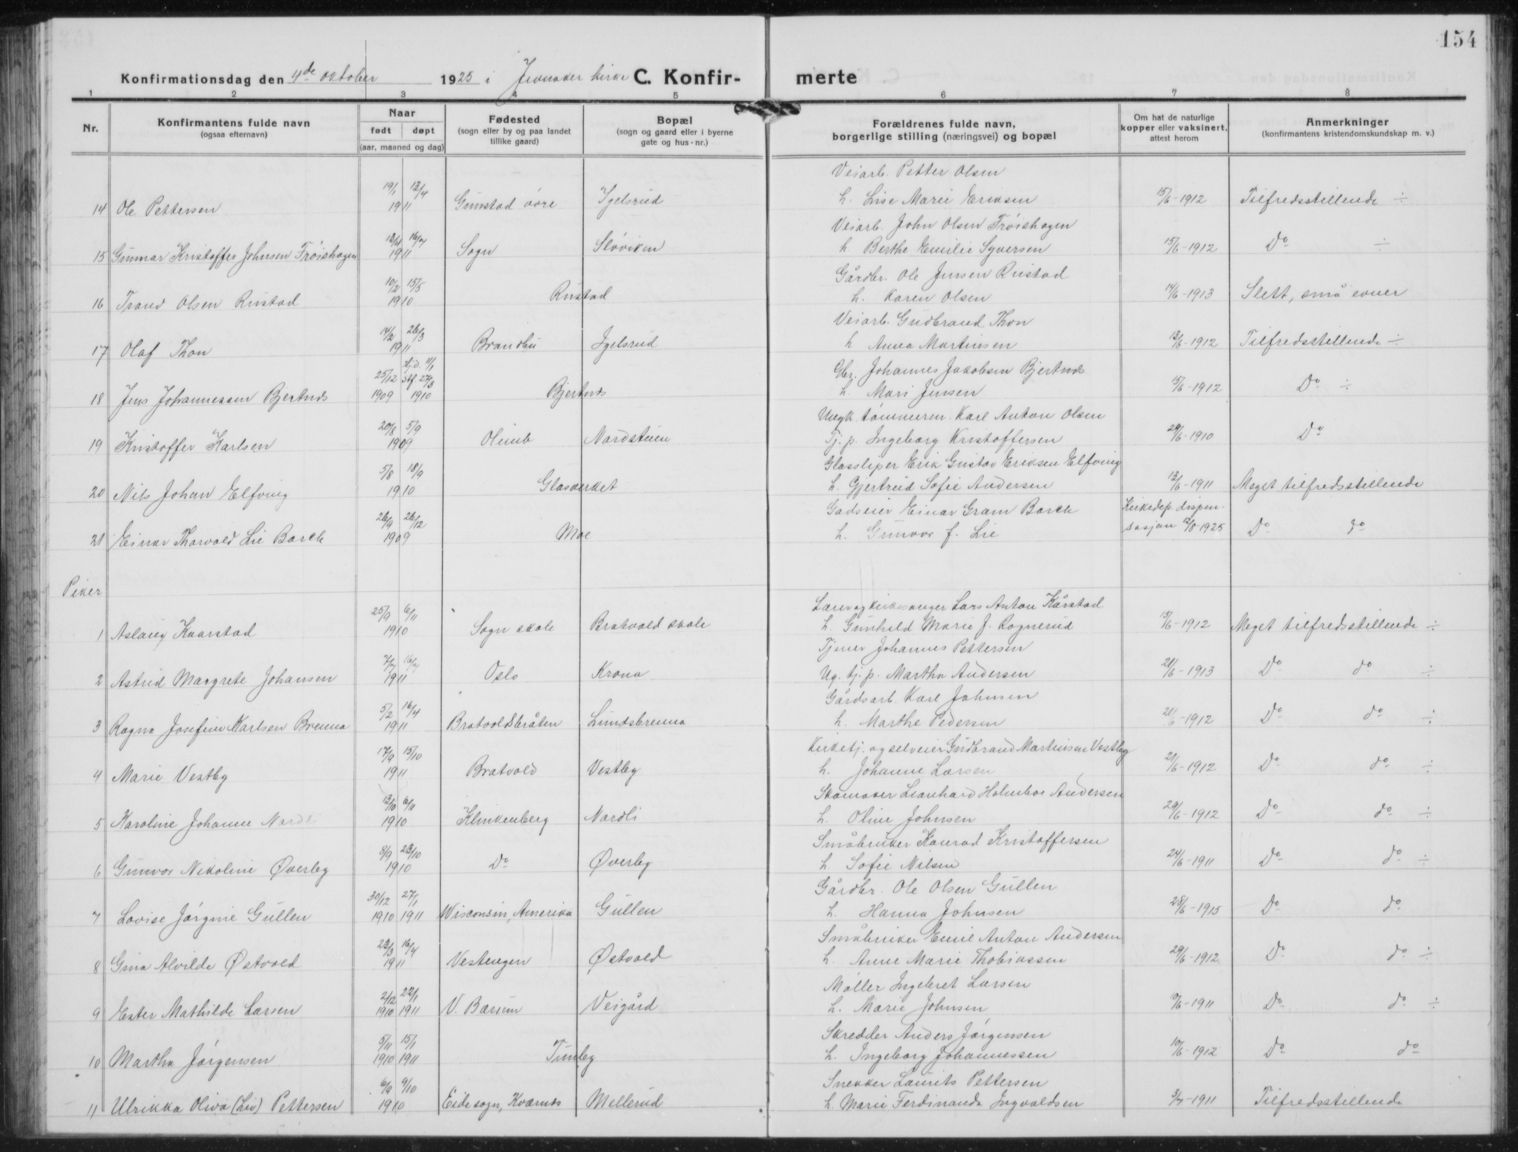 154
Konfirmationsdag den 4de oktober 1925 i Jevnaker kirke C. Konfirmerte
1 2 3 4 5 6 7 8
Nr. Konfirmantens fulde navn (ogsaa efternavn) Naar født døpt (aar, maaned og dag) Fødested (sogn eller by og paa landet tillike gaard) Bopæl (sogn og gaard eller i byerne gate og hus-nr.) Forældrenes fulde navn, borgerlige stilling (næringsvei) og bopæl Om hat de naturlige kopper eller vaksinert, attest herom Anmerkninger (konfirmantens kristendomskundskap m. v.)
Veiarb. Petter Olsen
14 Ole Pettersen 19/1 1911 Grinstad øvre Igelsrud h. Lise Marie Eriksen 15/6-1912 Tilfredsstillende ÷
Veiarb. John Olsen Trøishagen
15 Gunnar Kristoffer Johnsen Trøishagen 16/7 1911 Sogn Sløviken h. Berthe Emilie Syversen 15/6-1912 Do ÷
Gårdbr. Ole Jensen Rustad
16 Olsen Rustad 10/2 15/5 1910 Rustad h. Karen Olsen 14/6-1913 Slett, små evner
Veiarb. Gudbrand Thon
17 Olaf Thon 14/2 26/3 1911 Brandbu Igelsrud h. Anna Martinsen 1912 Tilfredsstillende ÷
Gbr. Johannes Jakobsen Bjertnes
18 Jens Johannessen Bjertnes 25/12 1909 27/3 1910 Bjertnes h. Mari Jensen 15/6-1912 Do ÷
Ungk. tømmerm. Karl Anton Olsen
19 Kristoffer Karlsen 5/9 1909 Olimb Nordstuen Tj. p. Ingeborg Kristoffersen 1910 Do
Glassliper Erik Gustav Eriksen Elfving
20 Nils Johan Elfving 5/8 18/9 1910 Glasverket h. Gjertrud Sofie Andersen 1911 Meget tilfredsstillende
Gårdeier Einar Gram Borch Kirkedep. dispen-
21 Einar Thorvald Lie Borch 26/9 26/12 1909 Moe h. Gunvor f. Lie sasjon 1925 Do do
Piker
Lærer og kirkesanger Lars Anton Kårstad
1 Aslaug Kaarstad 25/9 6/11 1910 Sogn skole Bratvold skole h. Gunhild Marie f. Rognerud 15/6-1912 Meget tilfredsstillende ÷
Tjener Johannes Pettersen
2 Astrid Margrete Johansen 1911 Oslo Krona Ug. tj. p. Martha Andersen 21/6-1913 Do do ÷
Gårdsarb. Karl Johnsen
3 Ragna Josefine Karlsen Brenna 5/2 16/4 1911 Bratvoldsbråten Lundsbrenna h. Marthe Pedersen 21/6-1912 Do do ÷
Kirketj. og selveier Gudbrand Martinsen Vestby
4 Marie Vestby 17/9 15/10 1911 Bratvold Vestby h. Johanne Larsen 21/6-1912 Do do ÷
Skomaker Leonhard Holmboe Andersen
5 Karoline Johanne Nordli 1910 Klinkenberg Nordli h. Oline Johnsen 29/6-1912 Do do ÷
Småbruker Konrad Kristoffersen
6 Gunvor Nikoline Øverby 8/9 23/10 1910 Do Øverby h. Sofie Nilsen 24/6-1911 Do do ÷
Gårdbr. Ole Olsen Gullen
7 Lovise Jørgine Gullen 30/12 1910 27/1 1911 Wisconsin, Amerika Gullen h. Hanna Johnsen 28/6-1915 Do do
Småbruker Emil Anton Andersen
8 Gina Alvilde Østvold 23/3 16/4 1911 Vestengen Østvold h. Anne Marie Thobiassen 29/6-1912 Do do ÷
Møller Ingebret Larsen
9 Ester Mathilde Larsen 2/12 1910 22/1 1911 V. Bærum Veigård h. Marie Johnsen 1911 Do do ÷
Skredder Anders Jørgensen
10 Martha Jørgensen 5/11 1910 15/1 1911 Timby h. Ingeborg Johannessen 10/6-1912 Do do
Snekker Laurits Pettersen
11 Ulrikka Oliva (Liv) Pettersen 9/10 1910 Eide sogn, Kværnes Mellerud h. Marie Ferdinanda Ingvaldsen 1911 Tilfredsstillende